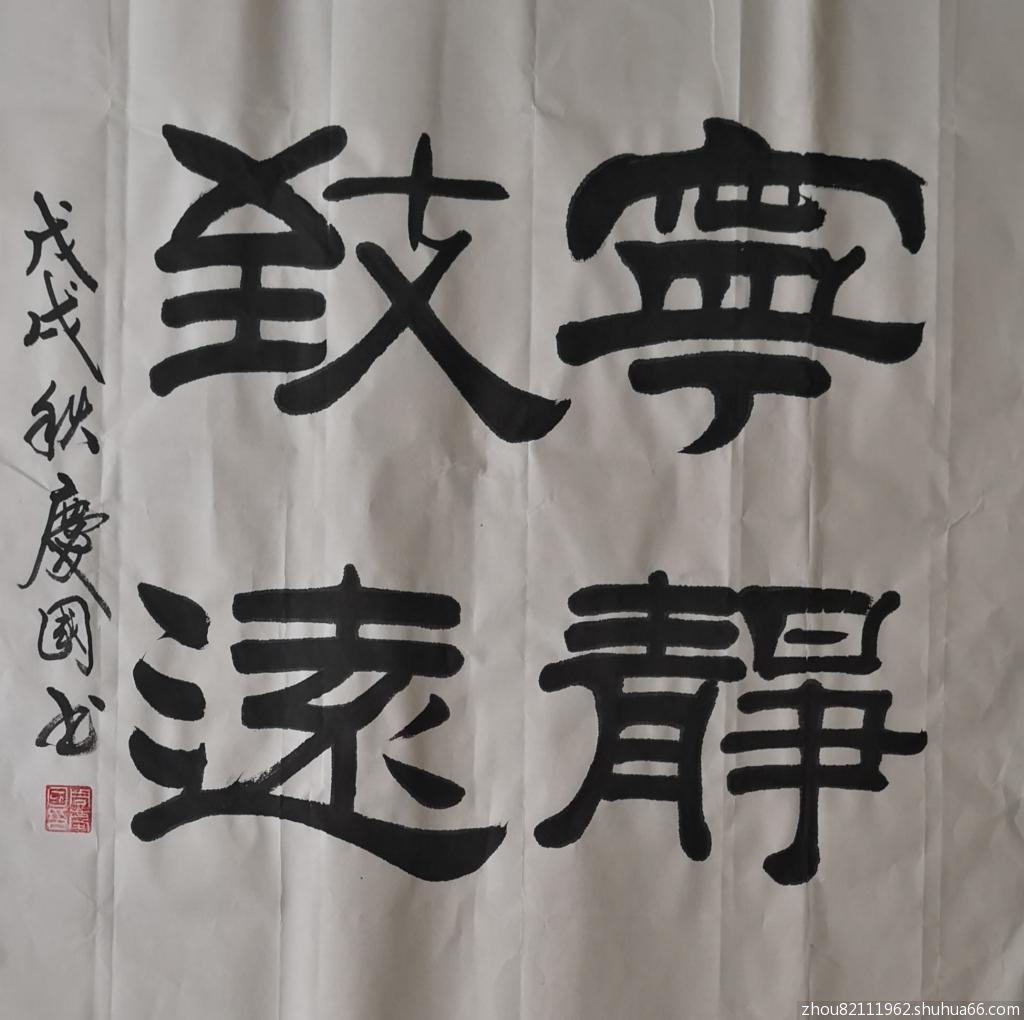 寧靜
致遠
戊戌秋慶國书
zhou82111962.shuhua66.com